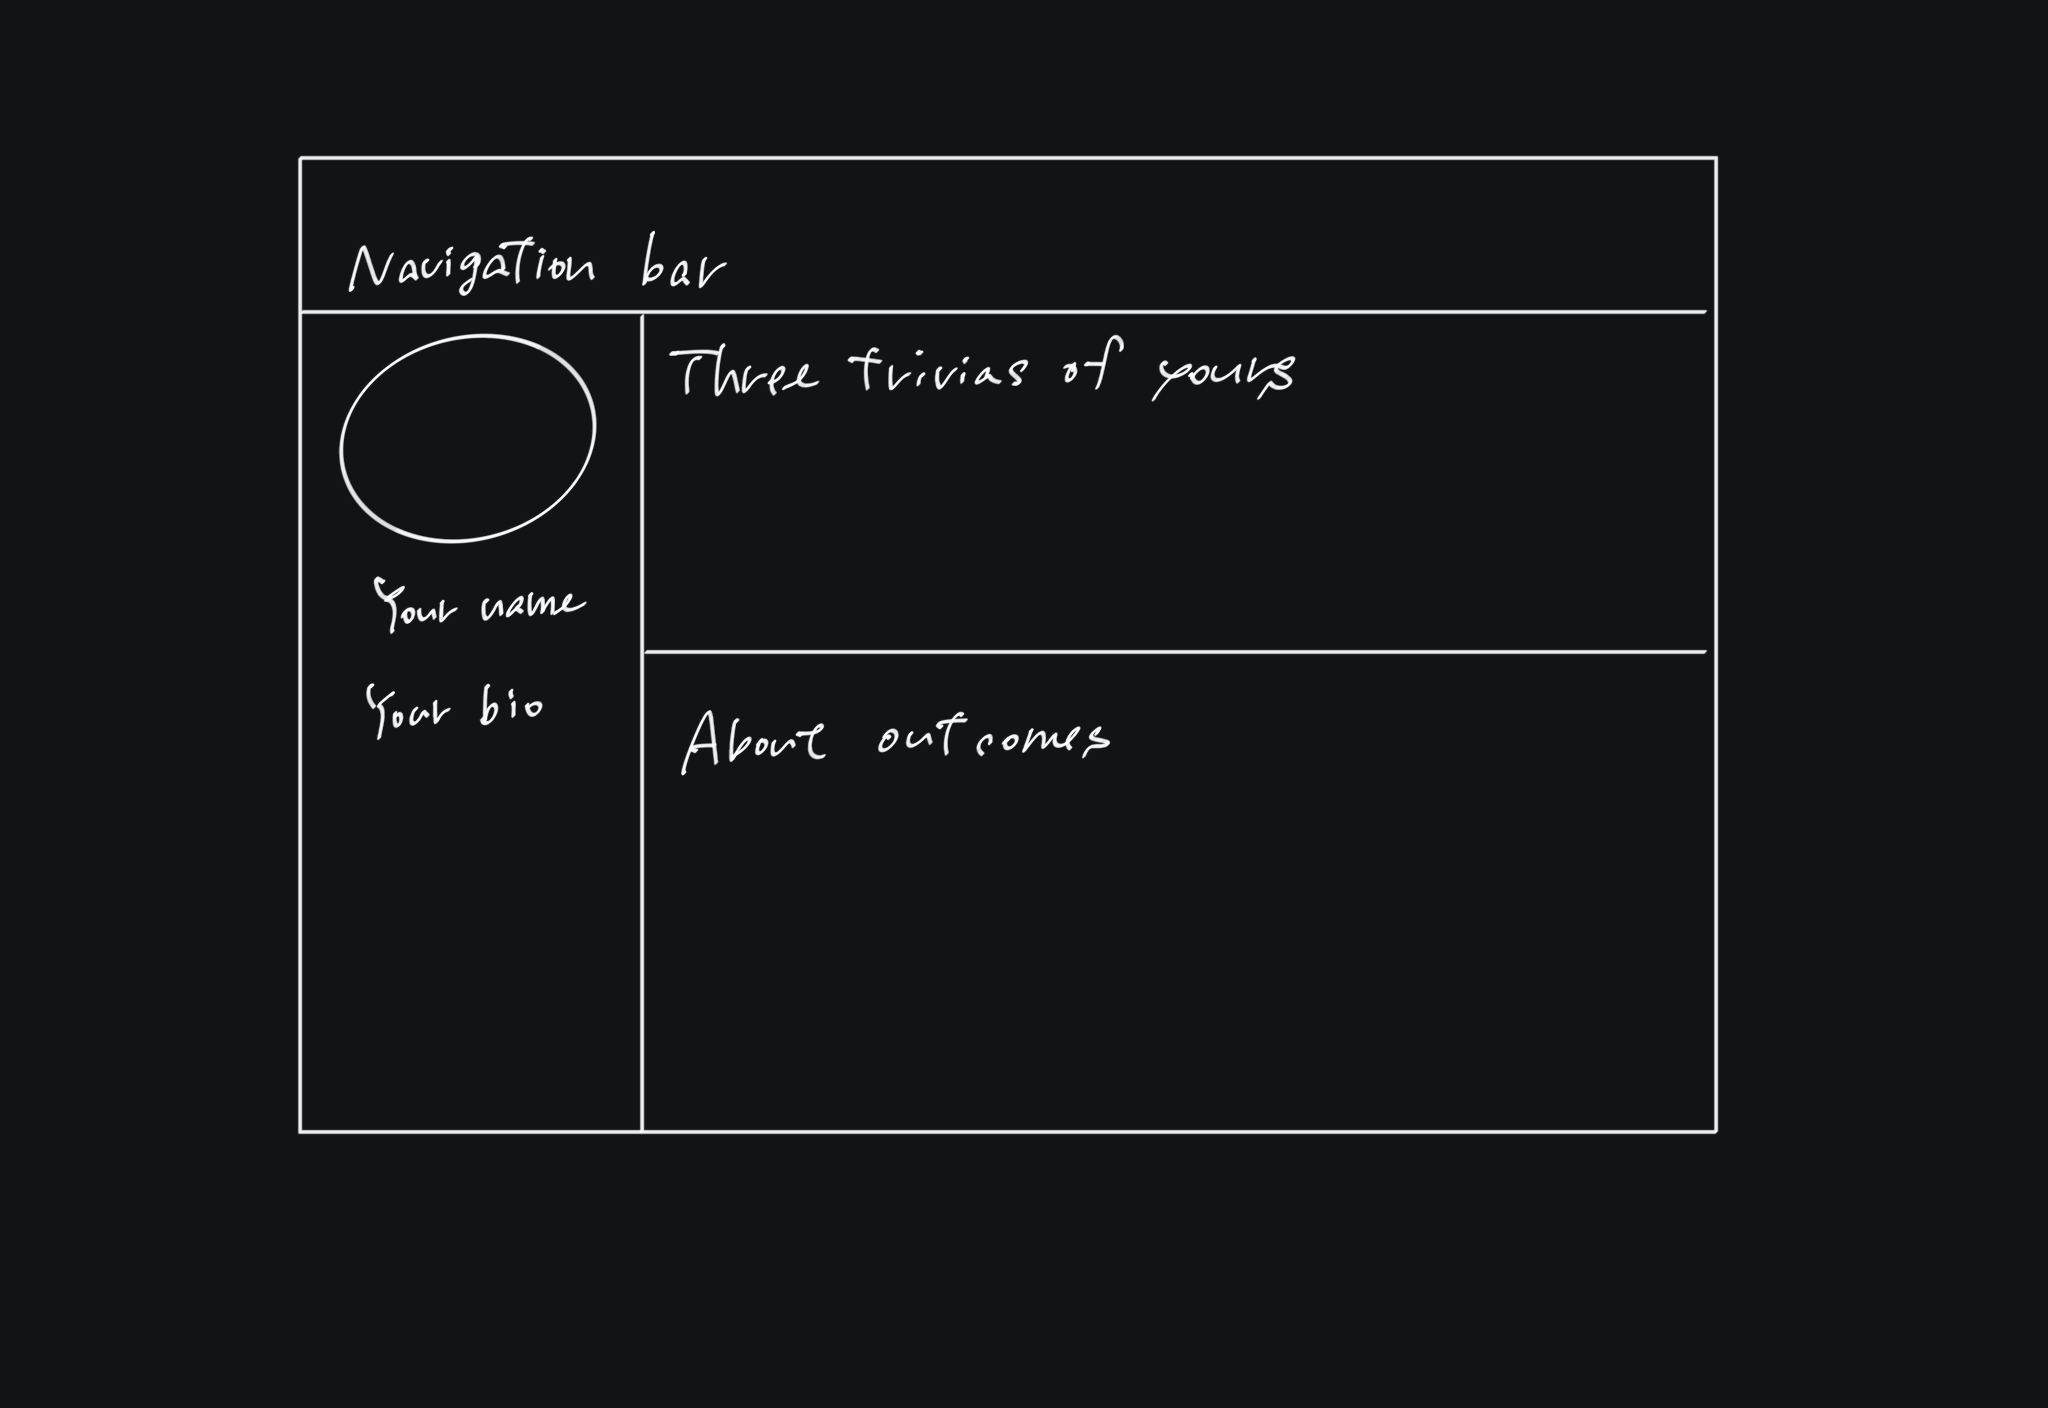 Navigation bar
Your name
Your bio
Three trivias of yours
About outcomes